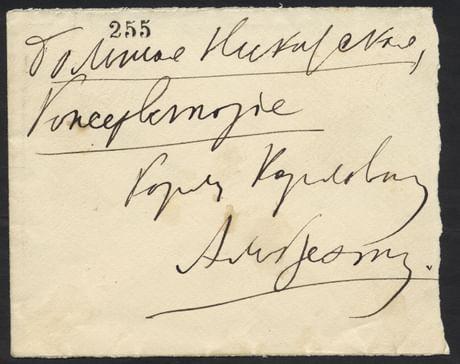 255
Большая Никитская,
Консерваторія
Карлу Карловичу
Альбрехту.